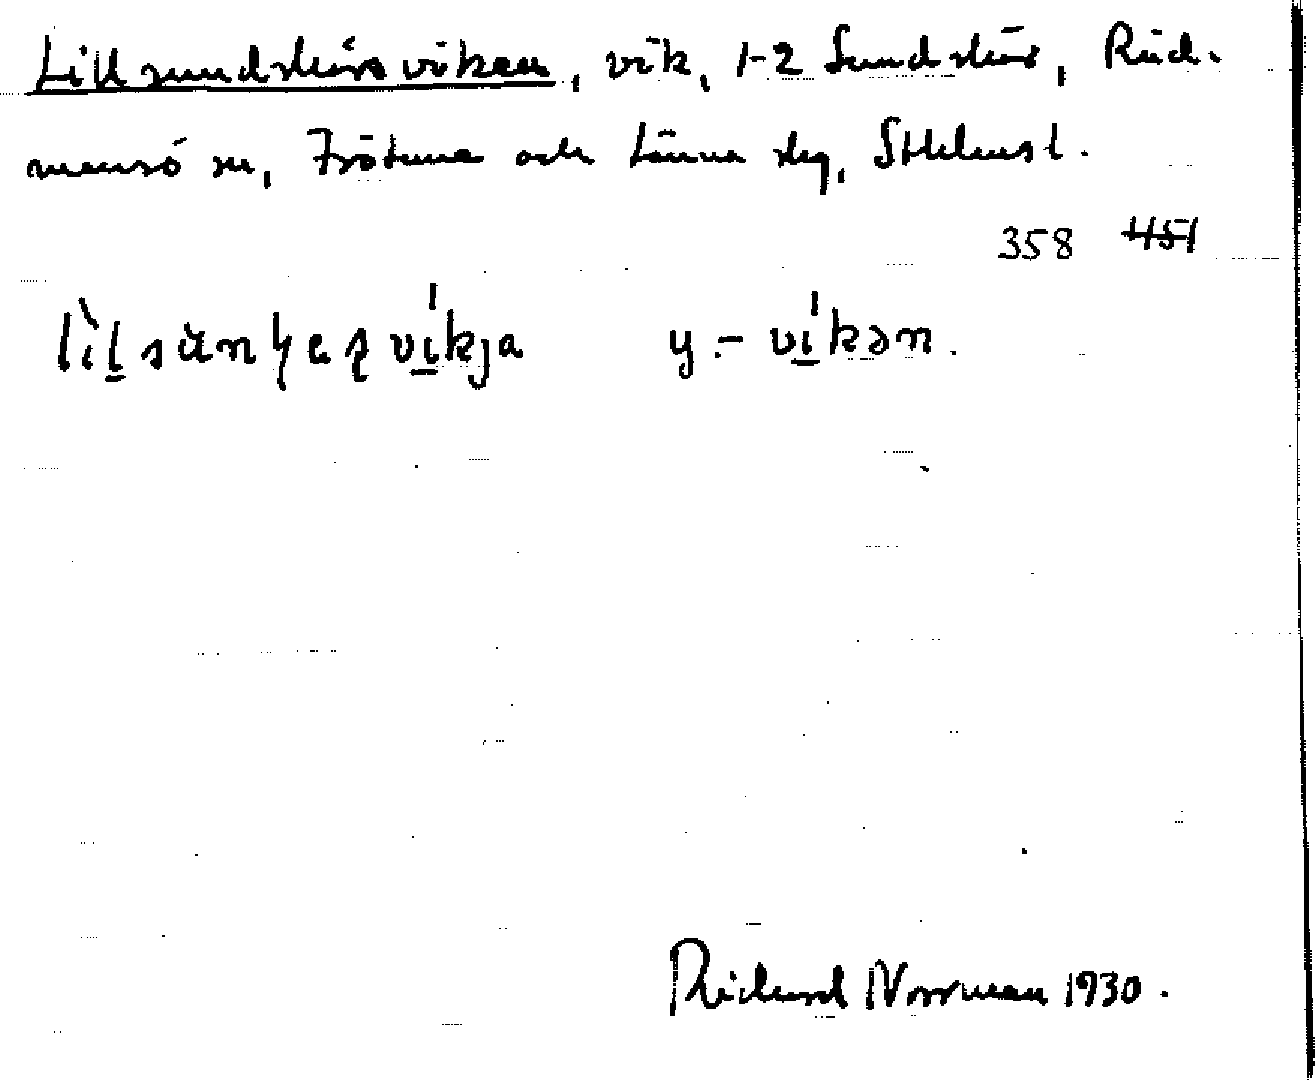 Lillsundskärsviken, vik, 1-2 Sundskär, Räd-
mansö sn, Frötuna och Länna slg, Sthlms l.
358 451
víkja y.- víkən.
Richard Norrman 1930.